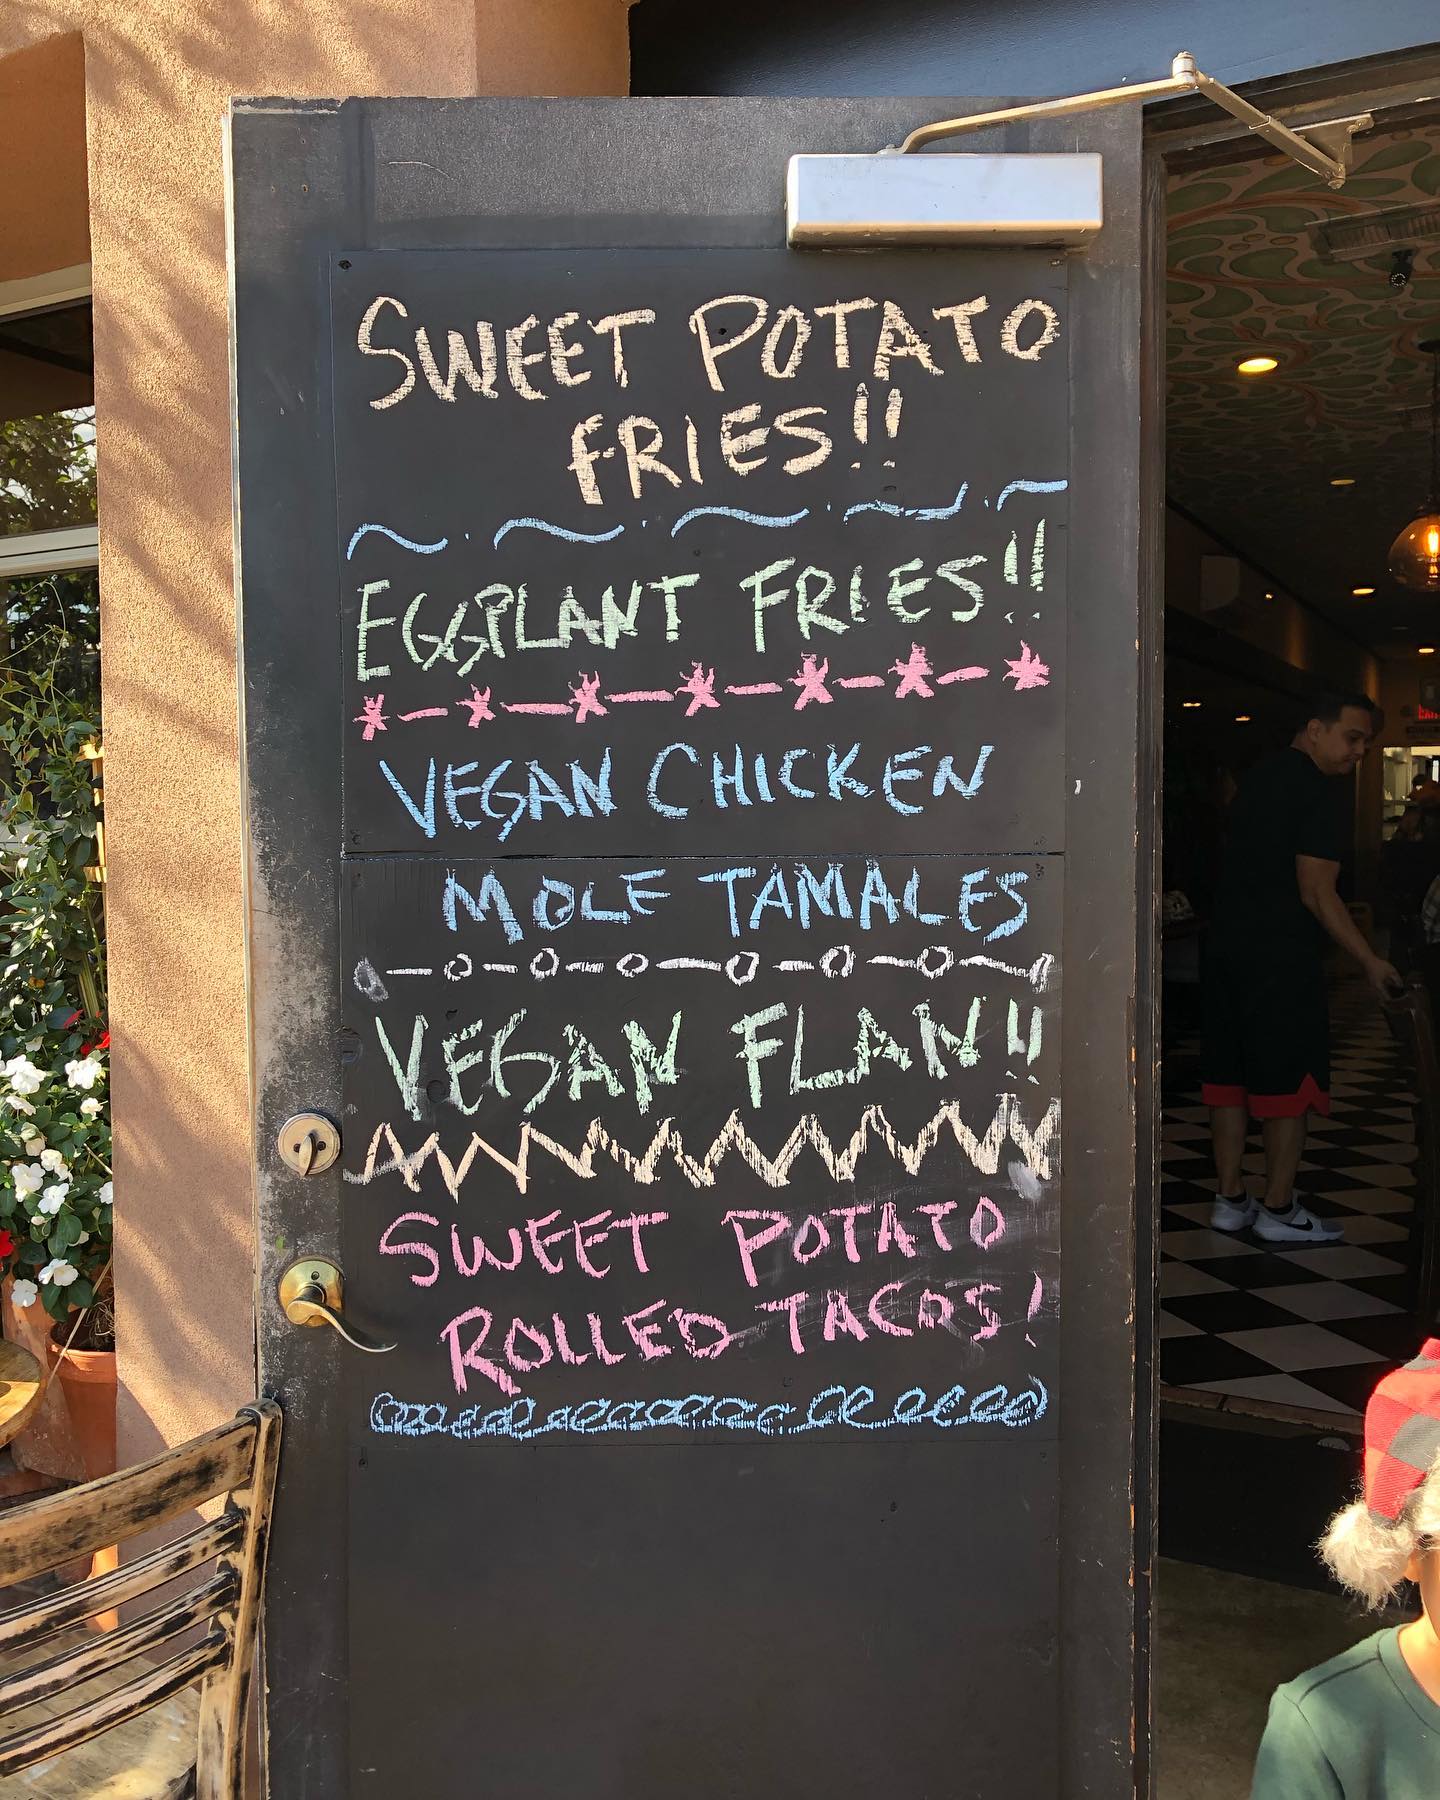 SWEET POTATO
FRIES!!
EGGPLANT FRIES!!
VEGAN CHICKEN
MOLE TAMALES
VEGAN FLAN!!
SWEET POTATO
ROLLED TACOS!
EXIT